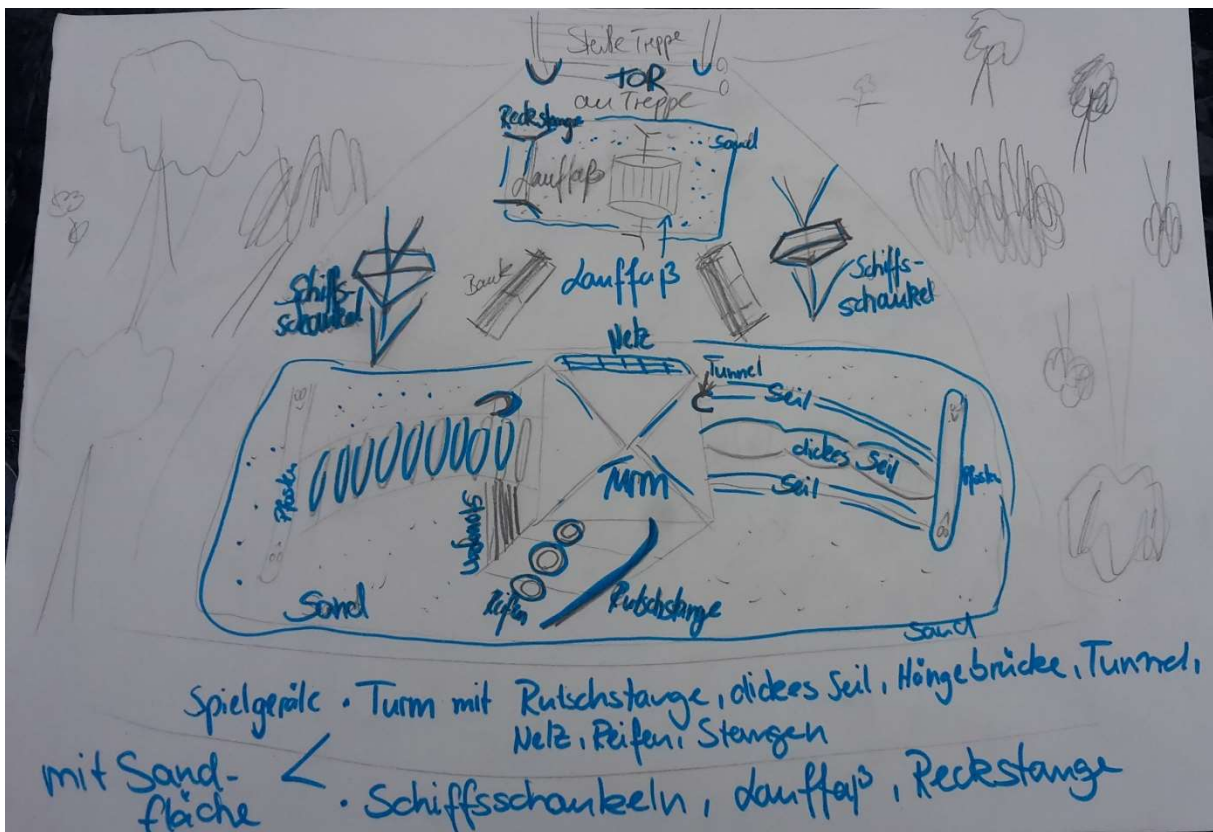 Steile Treppe
TOR
an Treppe
Reckstange
Sand
Lauffaß
Bank
Lauffaß
Schiffs-
schaukel
Schiffs-
schaukel
Netz
Tunnel
Seil
dickes Seil
Seil
Pfosten
Pfosten
Turm
Stangen
Reifen
Rutschstange
Sand
Sand
Spielgeräte • Turm mit Rutschstange, dickes Seil, Hängebrücke, Tunnel,
Netz, Reifen, Stangen
mit Sand-
fläche < • Schiffsschaukeln, Lauffaß, Reckstange